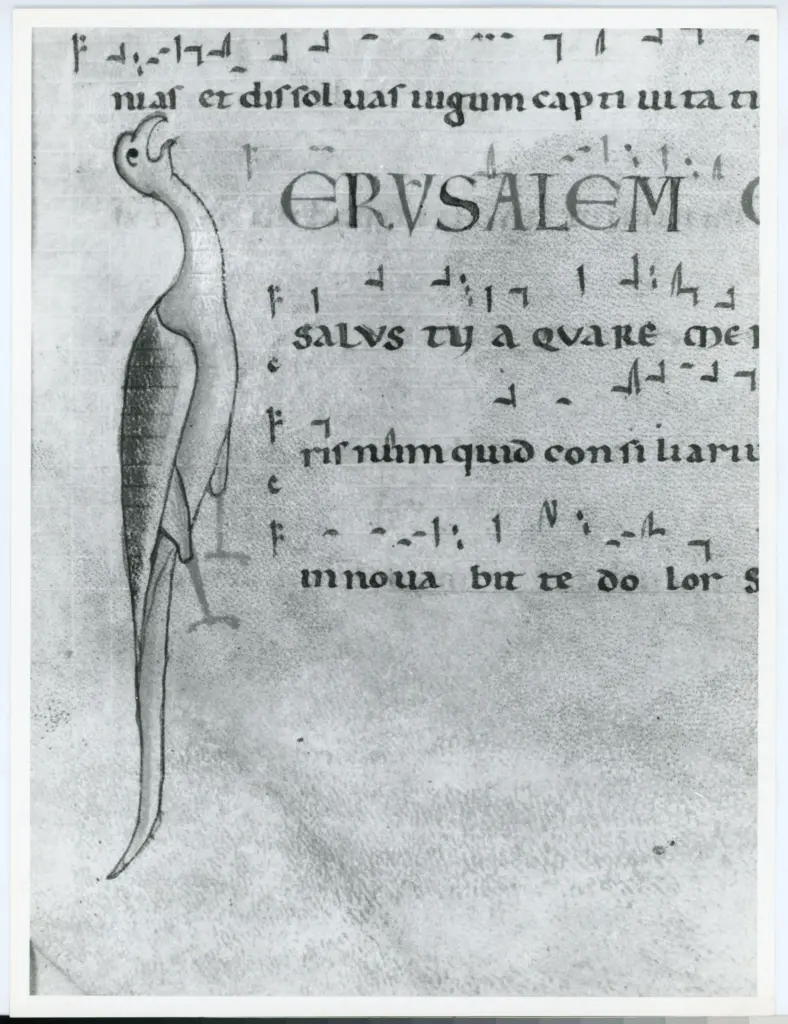 nias et dissol uas iugum capti uita ti
ERVSALEM
SALVS TU A QVARE ME
ris num quid con si liariu
in no ua bit te do lor S